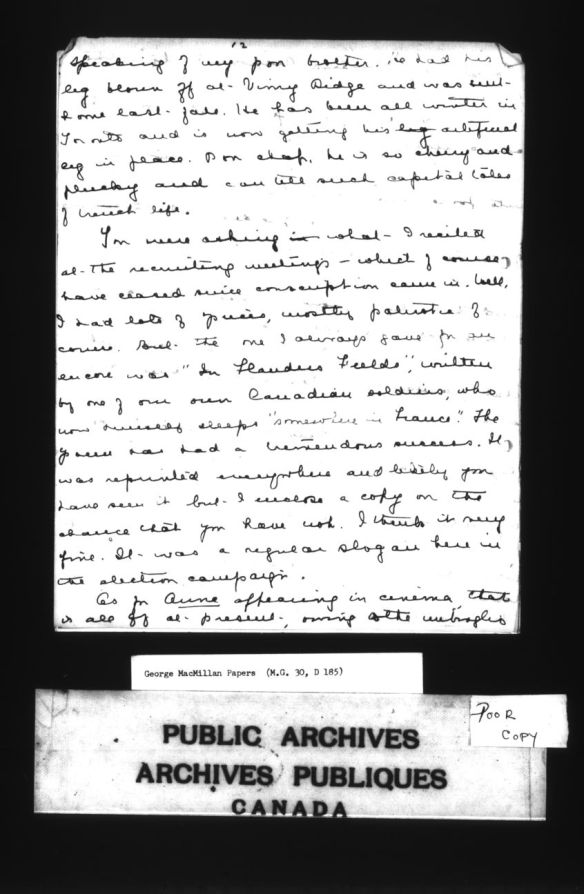 12
speaking of my poor brother. He had his
leg blown off at Vimy Ridge and was sent
home last fall. He has been all winter in
Toronto and is now getting his leg artificial
leg in place. Poor chap, he is so cheery and
plucky and can tell such capital tales
of trench life.
You were asking in what I recited
at the recruiting meetings – which of course,
have ceased since conscription came in. Well,
I had lots of pieces, mostly patriotic of
course. But the one I always gave for an
encore was "In Flanders Fields", written
by one of our own Canadian soldiers, who
now himself sleeps "somewhere in France". The
poem has had a tremendous success. It
was reprinted everywhere and likely you
have seen it but I enclose a copy on the
chance that you have not. I think it very
fine. It was a regular slogan here in
the election campaign.
As for Anne appearing in cinema that
is all off at present, owing to the imbroglio
George MacMillan Papers (M.G. 30, D 185)
POOR
COPY
PUBLIC ARCHIVES
ARCHIVES PUBLIQUES
CANADA